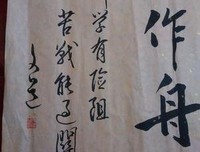 作舟
学有险阻
苦战能过關